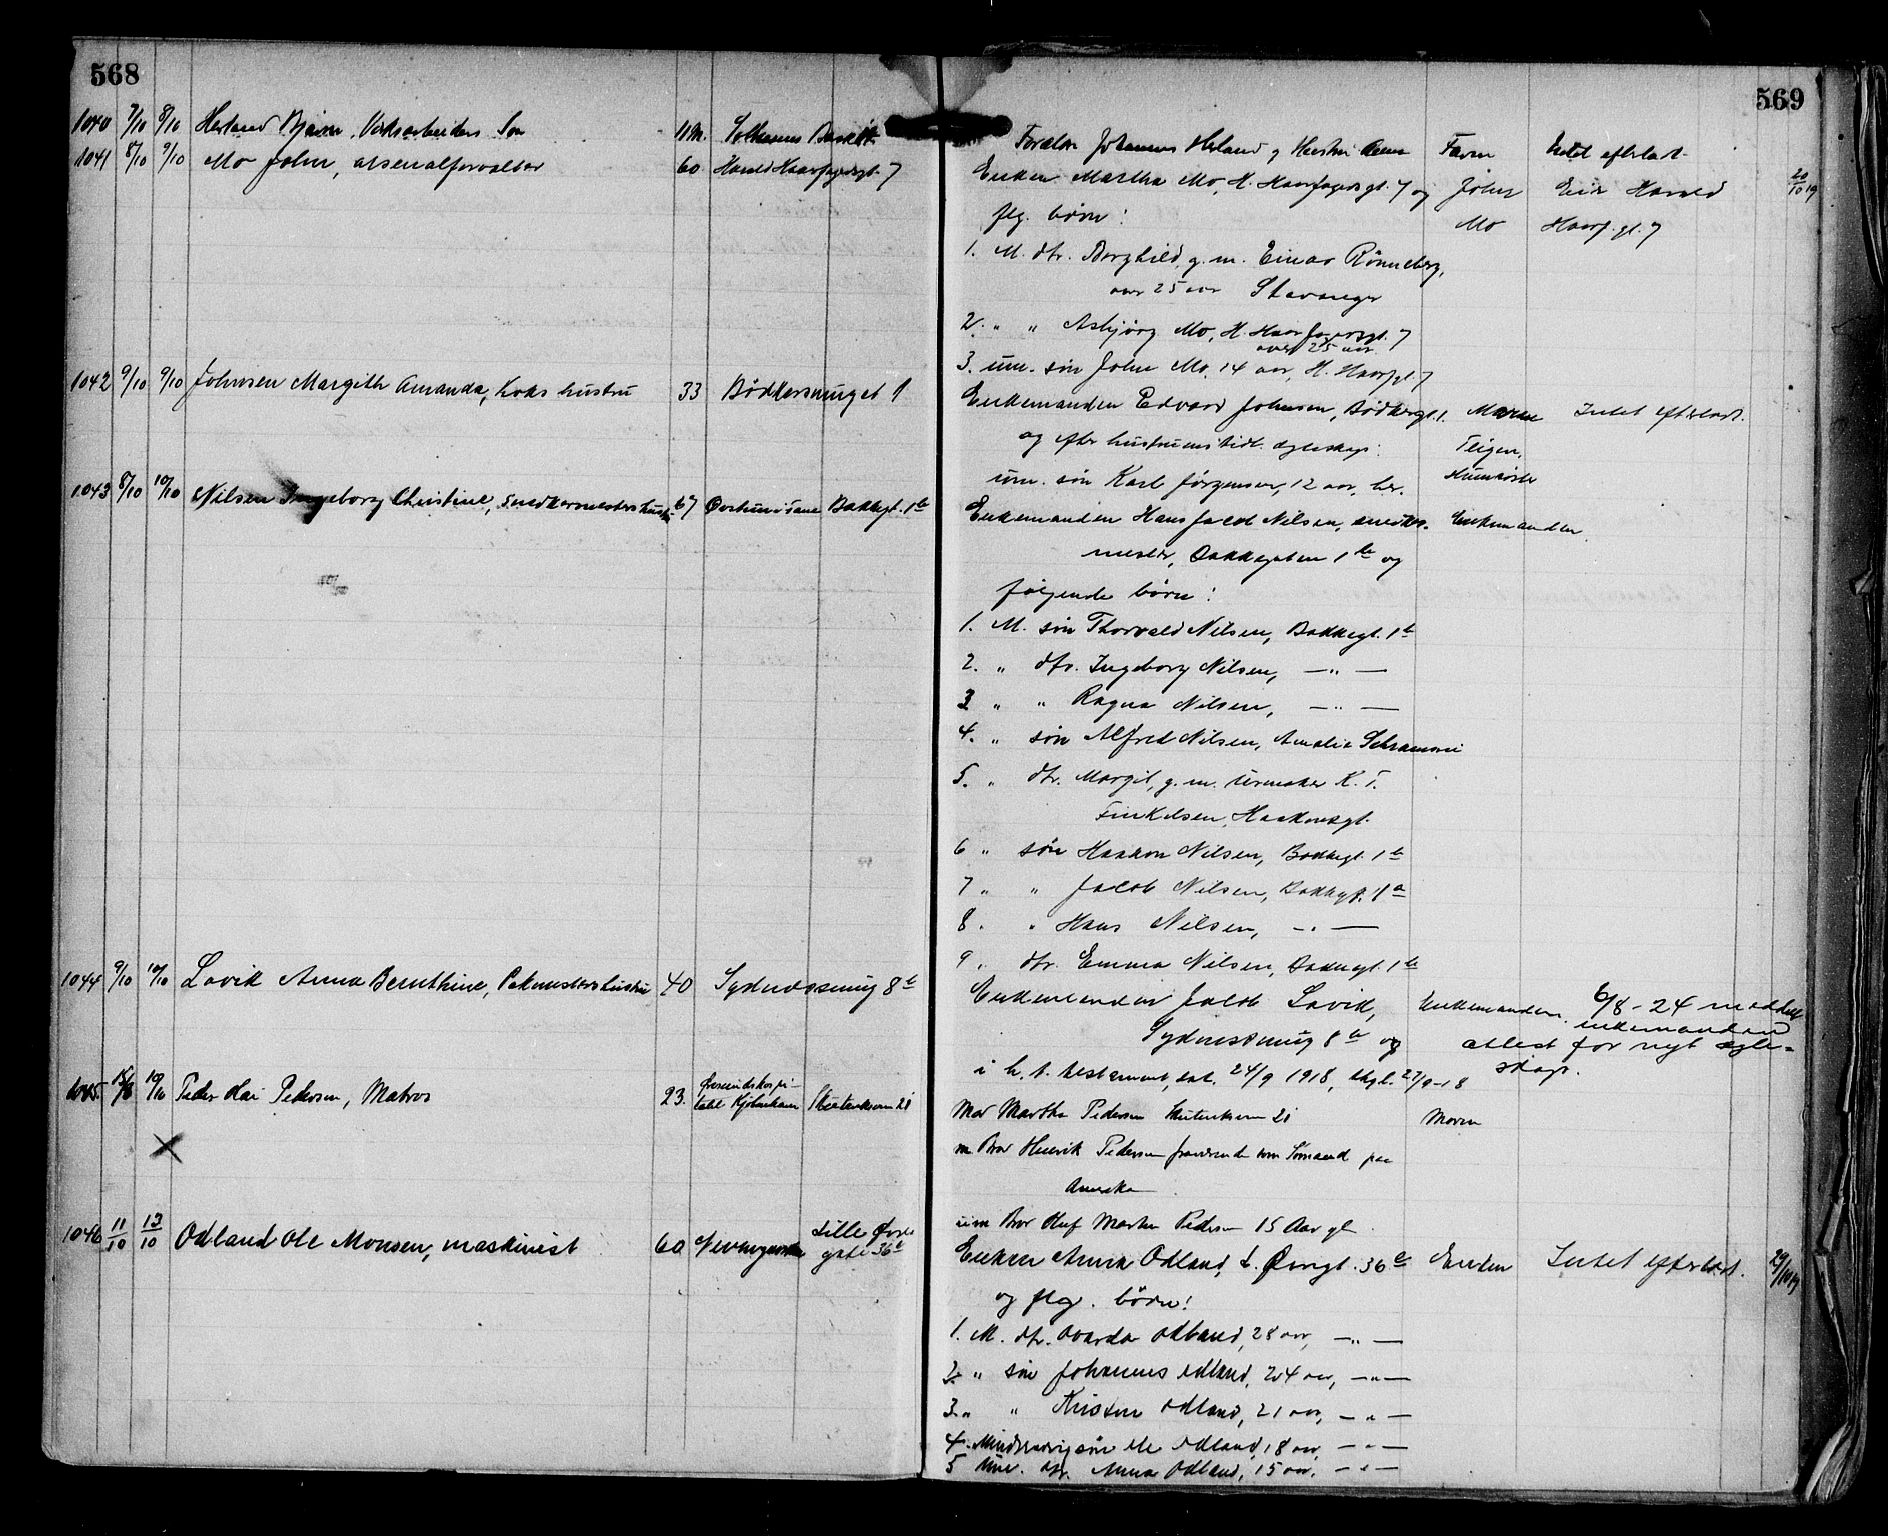 568
569
1040 7/10 8/10 Herland Bjarne, Verksarbeiders Søn 11 M. Solheims
Forældre Johannes Herland og Hustru Anna Faren Intet efterladt.
1041 8/10 9/10 Mo John, arsenalforvalter 60 Harald Haarfagersgt. 7
Enken Martha Mo, H. Haarfagersgt. 7 og John Enk Harald 20/10 19
flg. børn: Mo Haarf. gt. 7
1. M. dtr. Borghild, g. m. Einar Rønneberg,
over 25 aar Stavanger
2. " " Asbjørg Mo, H. Haarfagersgt. 7
over 25 aar
3. um. søn John Mo, 14 aar, H. Haarfgt. 7
1042 9/10 9/10 Johnsen Margith Amanda, koks hustru 33 Bødkersmuget 1
Enkemanden Edvard Johnsen, Bødkergt. 1. Intet efterladt.
og efter hustruens tidl. egteskap: Teigen,
um. søn Karl Jørgensen, 12 aar, her.
1043 8/10 10/10 Nilsen Ingeborg Christine, snedkermesters hustru 67 Bakkegt. 1b
Enkemanden Hans Jacob Nilsen, snedker- Enkemanden.
mester, Bakkegaten 1b og
følgende børn:
1. M. søn Thorvald Nilsen, Bakkegt. 1b
2. " dtr. Ingeborg Nilsen, — " —
3 " " Ragna Nilsen, — " —
4. " søn Alfred Nilsen, Amalie Schramsvei
5. " dtr. Margit, g. m. urmaker K. T.
Finkelsen, Haakonsgt.
6 " søn Haakon Nilsen, Bakkegt. 1b
7 " " Jacob Nilsen, Bakkegt. 1a
8. " Hans Nilsen, — " —
9 " dtr. Emma Nilsen, Bakkegt. 1b
1044 9/10 10/10 Lavik Anna Bernthine, Pakmesters hustru 40 Sydnessmug 8b
Enkemanden Jacob Lavik, Enkemanden. 6/8 - 24 meddelt
Sydnessmug 8b og enkemanden
attest for nyt egte=
i h. t. testament, dat. 24/9 1918, thgl. 27/9-18 skap.
1045. 10/10 Peder Kai Pedersen, Matros 23. Øresundshospi-
talet Kjøbenhavn
Mor Martha Pedersen Moren
m Bror Henrik Pedersen fraværende som Sømand paa
Amerika
um Bror Oluf Martin Pedersen 15 Aar gl
1046 11/10 13/10 Odland Ole Monsen, maskinist 60 Lille Øvre
gate 36b
Enken Anna Odland, L. Øvregt. 36b Enken Intet efterladt. 29/10 19
og flg. børn:
1. M. dtr. Odland, 28 aar, — " —
2. " søn Johannes Odland, 24 aar, — " —
3. " " Odland, 21 aar, — " —
4. Mindreaarig søn Ole Odland, 18 aar, — " —
5 Um. dtr. Anna Odland, 15 aar, — " —